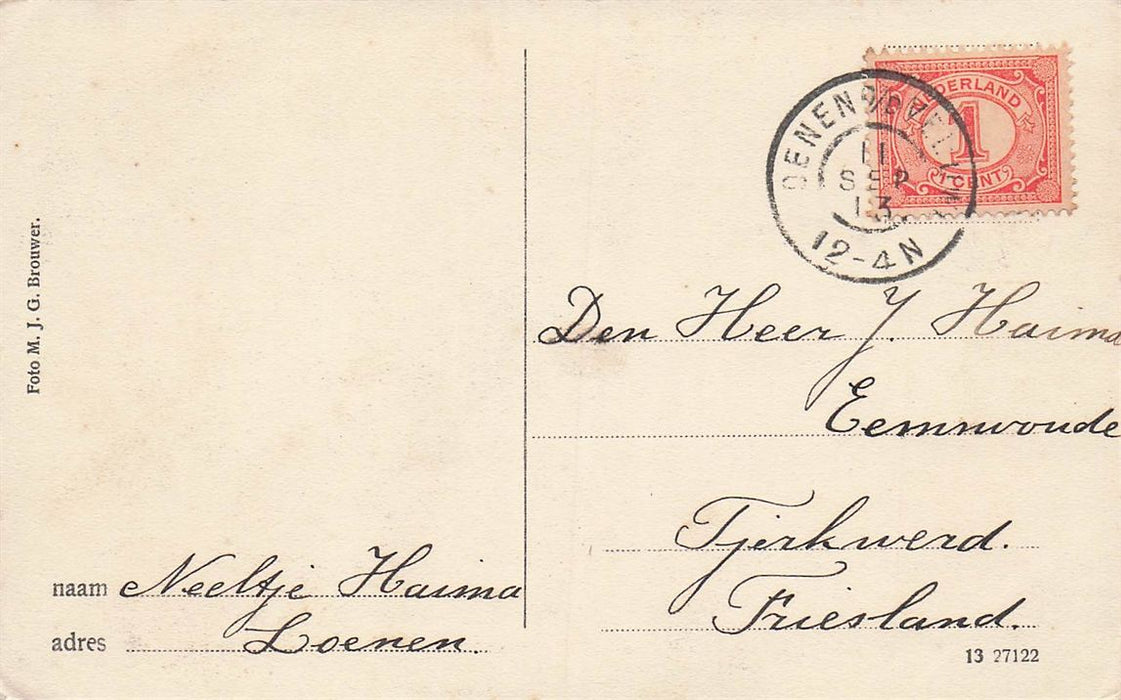 Foto M. J. G. Brouwer.
NEDERLAND
1
1 CENT
11
SEP
13
12-4N
Den Heer J. Haima
Eemswoude
Tjerkwerd.
Friesland.
naam Neeltje Haima
adres Loenen.
13 27122